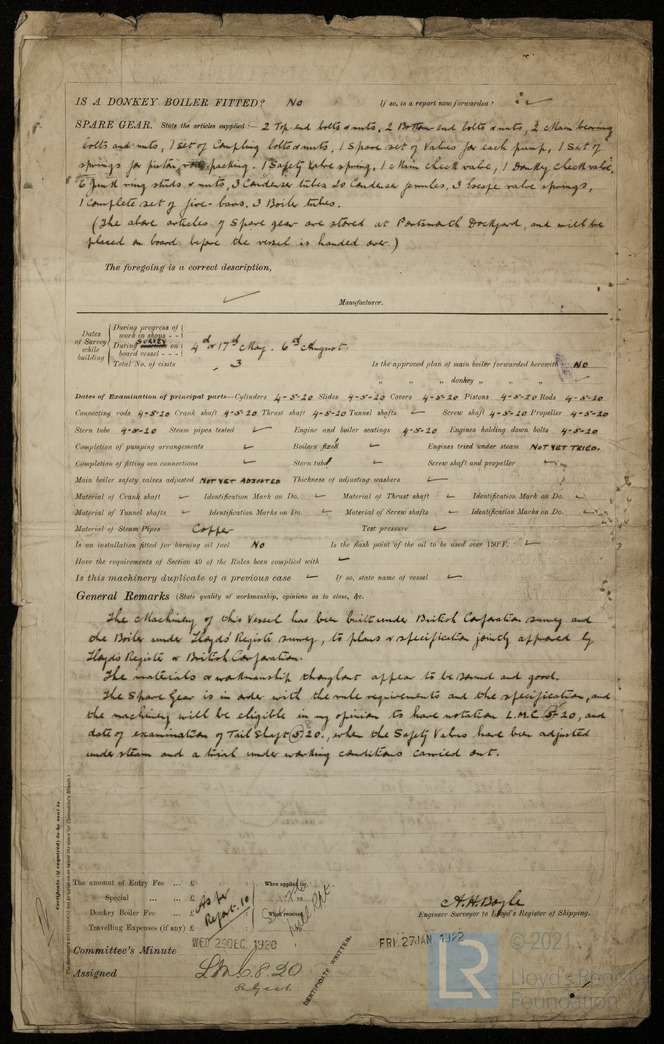 IS A DONKEY BOILER FITTED? No If so, is a report now forwarded? ✓
SPARE GEAR. State the articles supplied:— 2 Top end bolts & nuts, 2 Bottom end bolts & nuts, 2 Main bearing
bolts and nuts, 1 Set of Coupling bolts & nuts, 1 Spare set of Valves for each pump, 1 Set of
springs for piston packing. 1 Safety Valve spring, 1 Main check valve, 1 Donkey check valve,
6 Junk ring studs & nuts, 3 Condenser tubes, 20 Condenser ferrules, 3 Escape valve springs,
1 Complete set of fire-bars, 3 Boiler tubes.
(The above articles of Spare gear are stored at Portsmouth Dockyard, and will be
placed on board before the vessel is handed over.)
The foregoing is a correct description,
✓ Manufacturer.
Dates of Survey while building
During progress of work in shops - -
During SURVEY on board vessel - - -
4th & 17th May. 6th August
Total No. of visits 3
Is the approved plan of main boiler forwarded herewith No
" " " donkey " " " ✓
Dates of Examination of principal parts—Cylinders 4-5-20 Slides 4-5-20 Covers 4-5-20 Pistons 4-5-20 Rods 4-5-20
Connecting rods 4-5-20 Crank shaft 4-5-20 Thrust shaft 4-5-20 Tunnel shafts ✓ Screw shaft 4-5-20 Propeller 4-5-20
Stern tube 4-5-20 Steam pipes tested ✓ Engine and boiler seatings 4-5-20 Engines holding down bolts 4-5-20
Completion of pumping arrangements ✓ Boilers fixed ✓ Engines tried under steam NOT YET TRIED.
Completion of fitting sea connections ✓ Stern tube ✓ Screw shaft and propeller ✓
Main boiler safety valves adjusted NOT YET ADJUSTED Thickness of adjusting washers ✓
Material of Crank shaft ✓ Identification Mark on Do. ✓ Material of Thrust shaft ✓ Identification Mark on Do. ✓
Material of Tunnel shafts ✓ Identification Marks on Do. ✓ Material of Screw shafts ✓ Identification Marks on Do. ✓
Material of Steam Pipes Copper Test pressure ✓
Is an installation fitted for burning oil fuel No Is the flash point of the oil to be used over 150°F. ✓
Have the requirements of Section 49 of the Rules been complied with ✓
Is this machinery duplicate of a previous case ✓ If so, state name of vessel ✓
General Remarks (State quality of workmanship, opinions as to class, &c.
The Machinery of this Vessel has been built under British Corporation survey and
the Boiler under Lloyds' Register survey, to plans & specification jointly approved by
Lloyd's Register & British Corporation.
The materials & workmanship throughout appear to be sound and good.
The Spare Gear is in order with the rule requirements and the specification, and
the machinery will be eligible in my opinion to have notation L.M.C. 5-20, and
date of examination of Tail Shaft 5) 20., when the Safety Valves have been adjusted
under steam and a trial under working conditions carried out.
Certificate (if required) to be sent to
The amount of Entry Fee ... £ : :
Special ... £
Donkey Boiler Fee ... £
Travelling Expenses (if any) £
As per Report 10
When applied for,
When received,
A. H. Boyle
Engineer Surveyor to Lloyd's Register of Shipping.
Committee's Minute WED 29 DEC. 1920
FRI. 27 JAN 1922
Assigned LMC 8.20
CERTIFICATE WRITTEN.
© 2021
Lloyd's Register
Foundation
LR